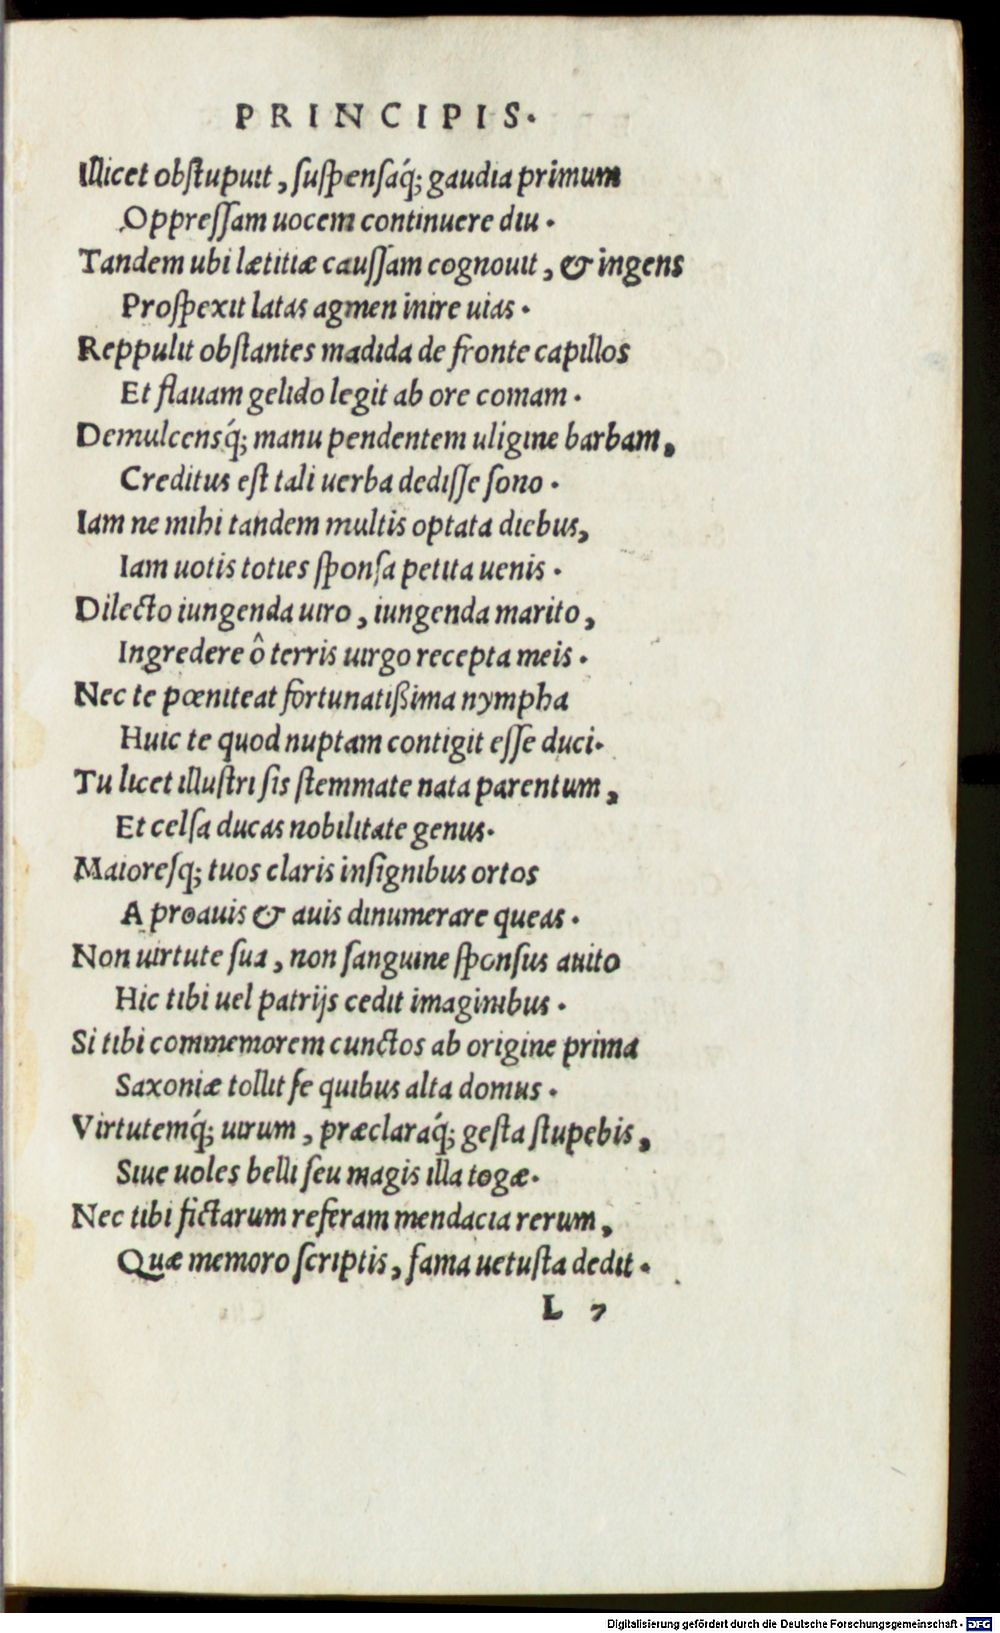 PRINCIPIS.
Illicet obstupuit, suspensáq; gaudia primum
Oppressam uocem continuere diu.
Tandem ubi lætitiæ caussam cognouit, & ingens
Prospexit latas agmen inire uias.
Reppulit obstantes madida de fronte capillos
Et flauam gelido legit ab ore comam.
Demulcensq́; manu pendentem uligine barbam,
Creditus est tali uerba dedisse sono.
Iam ne mihi tandem multis optata diebus,
Iam uotis toties sponsa petita uenis.
Dilecto iungenda uiro, iungenda marito,
Ingredere ô terris uirgo recepta meis.
Nec te pœniteat fortunatißima nympha
Huic te quod nuptam contigit esse duci.
Tu licet illustri sis stemmate nata parentum,
Et celsa ducas nobilitate genus.
Maioresq; tuos claris insignibus ortos
A proauis & auis dinumerare queas.
Non uirtute sua, non sanguine sponsus auito
Hic tibi uel patrijs cedit imaginibus.
Si tibi commemorem cunctos ab origine prima
Saxoniæ tollit se quibus alta domus.
Virtutemq́; uirum, præclaraq́; gesta stupebis,
Siue uoles belli seu magis illa togæ.
Nec tibi fictarum referam mendacia rerum,
Quæ memoro scriptis, fama uetusta dedit.
L 7
Digitalisierung gefördert durch die Deutsche Forschungsgemeinschaft - DFG